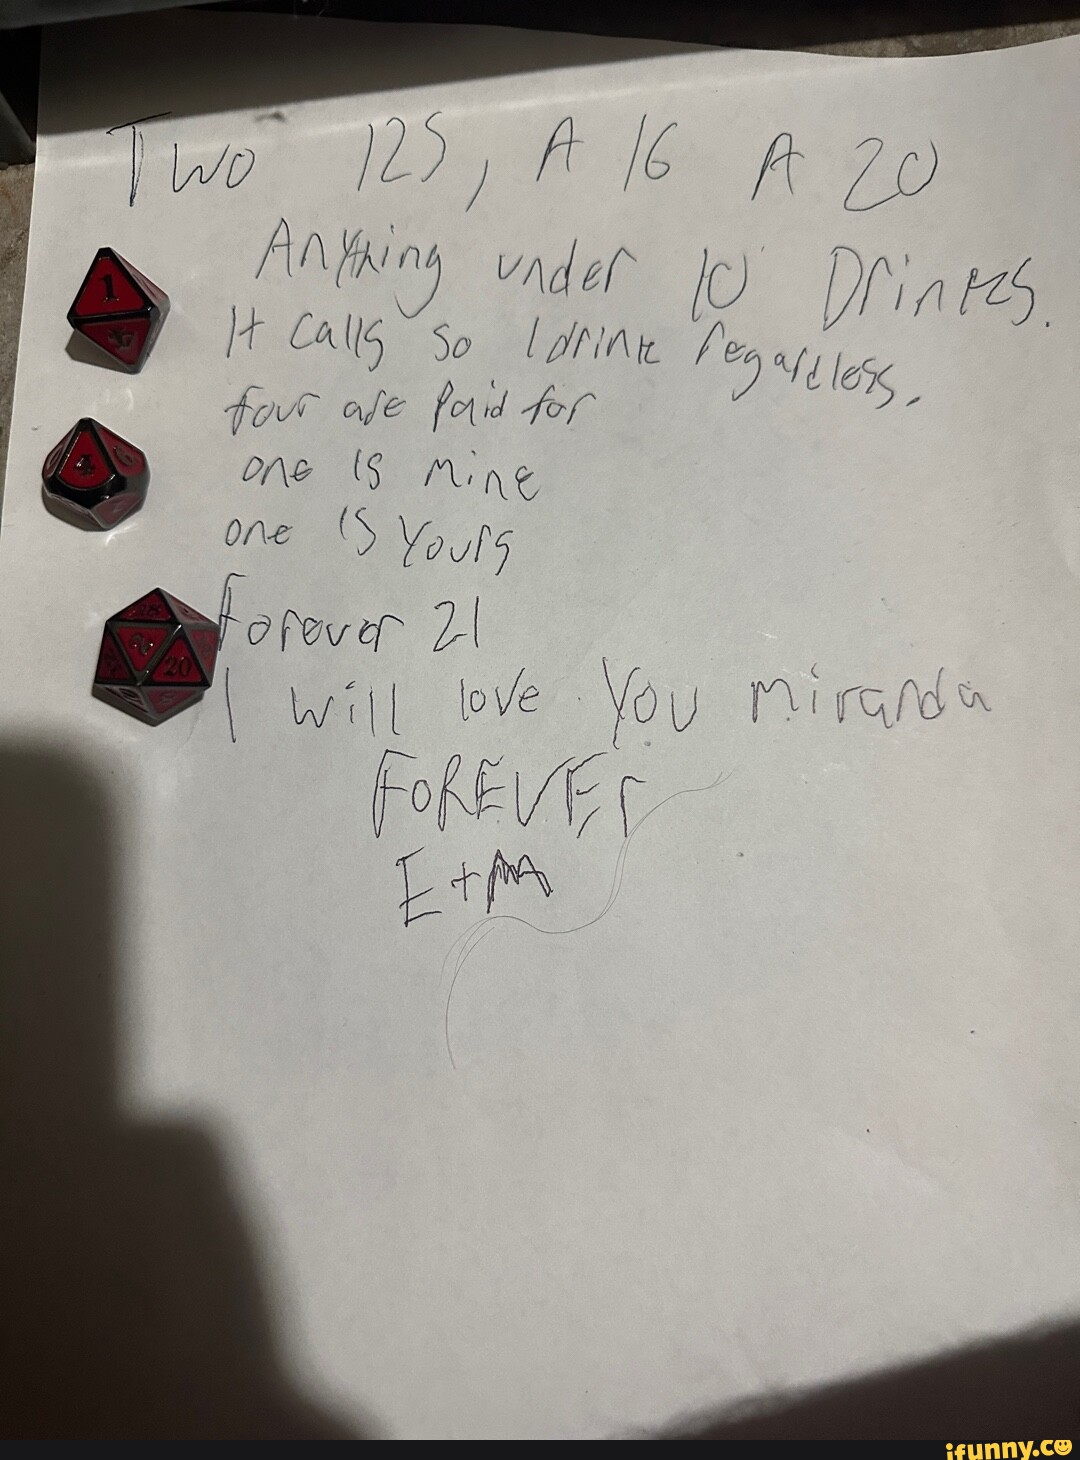 Two 12s, A 16 A 20
Anything under 10 Drinks.
It calls so I drink regardless.
four are Paid for
one is mine
one is Yours
Forever 21
I will love You miranda
FOREVEr
E+M
1
4
20
ifunny.co